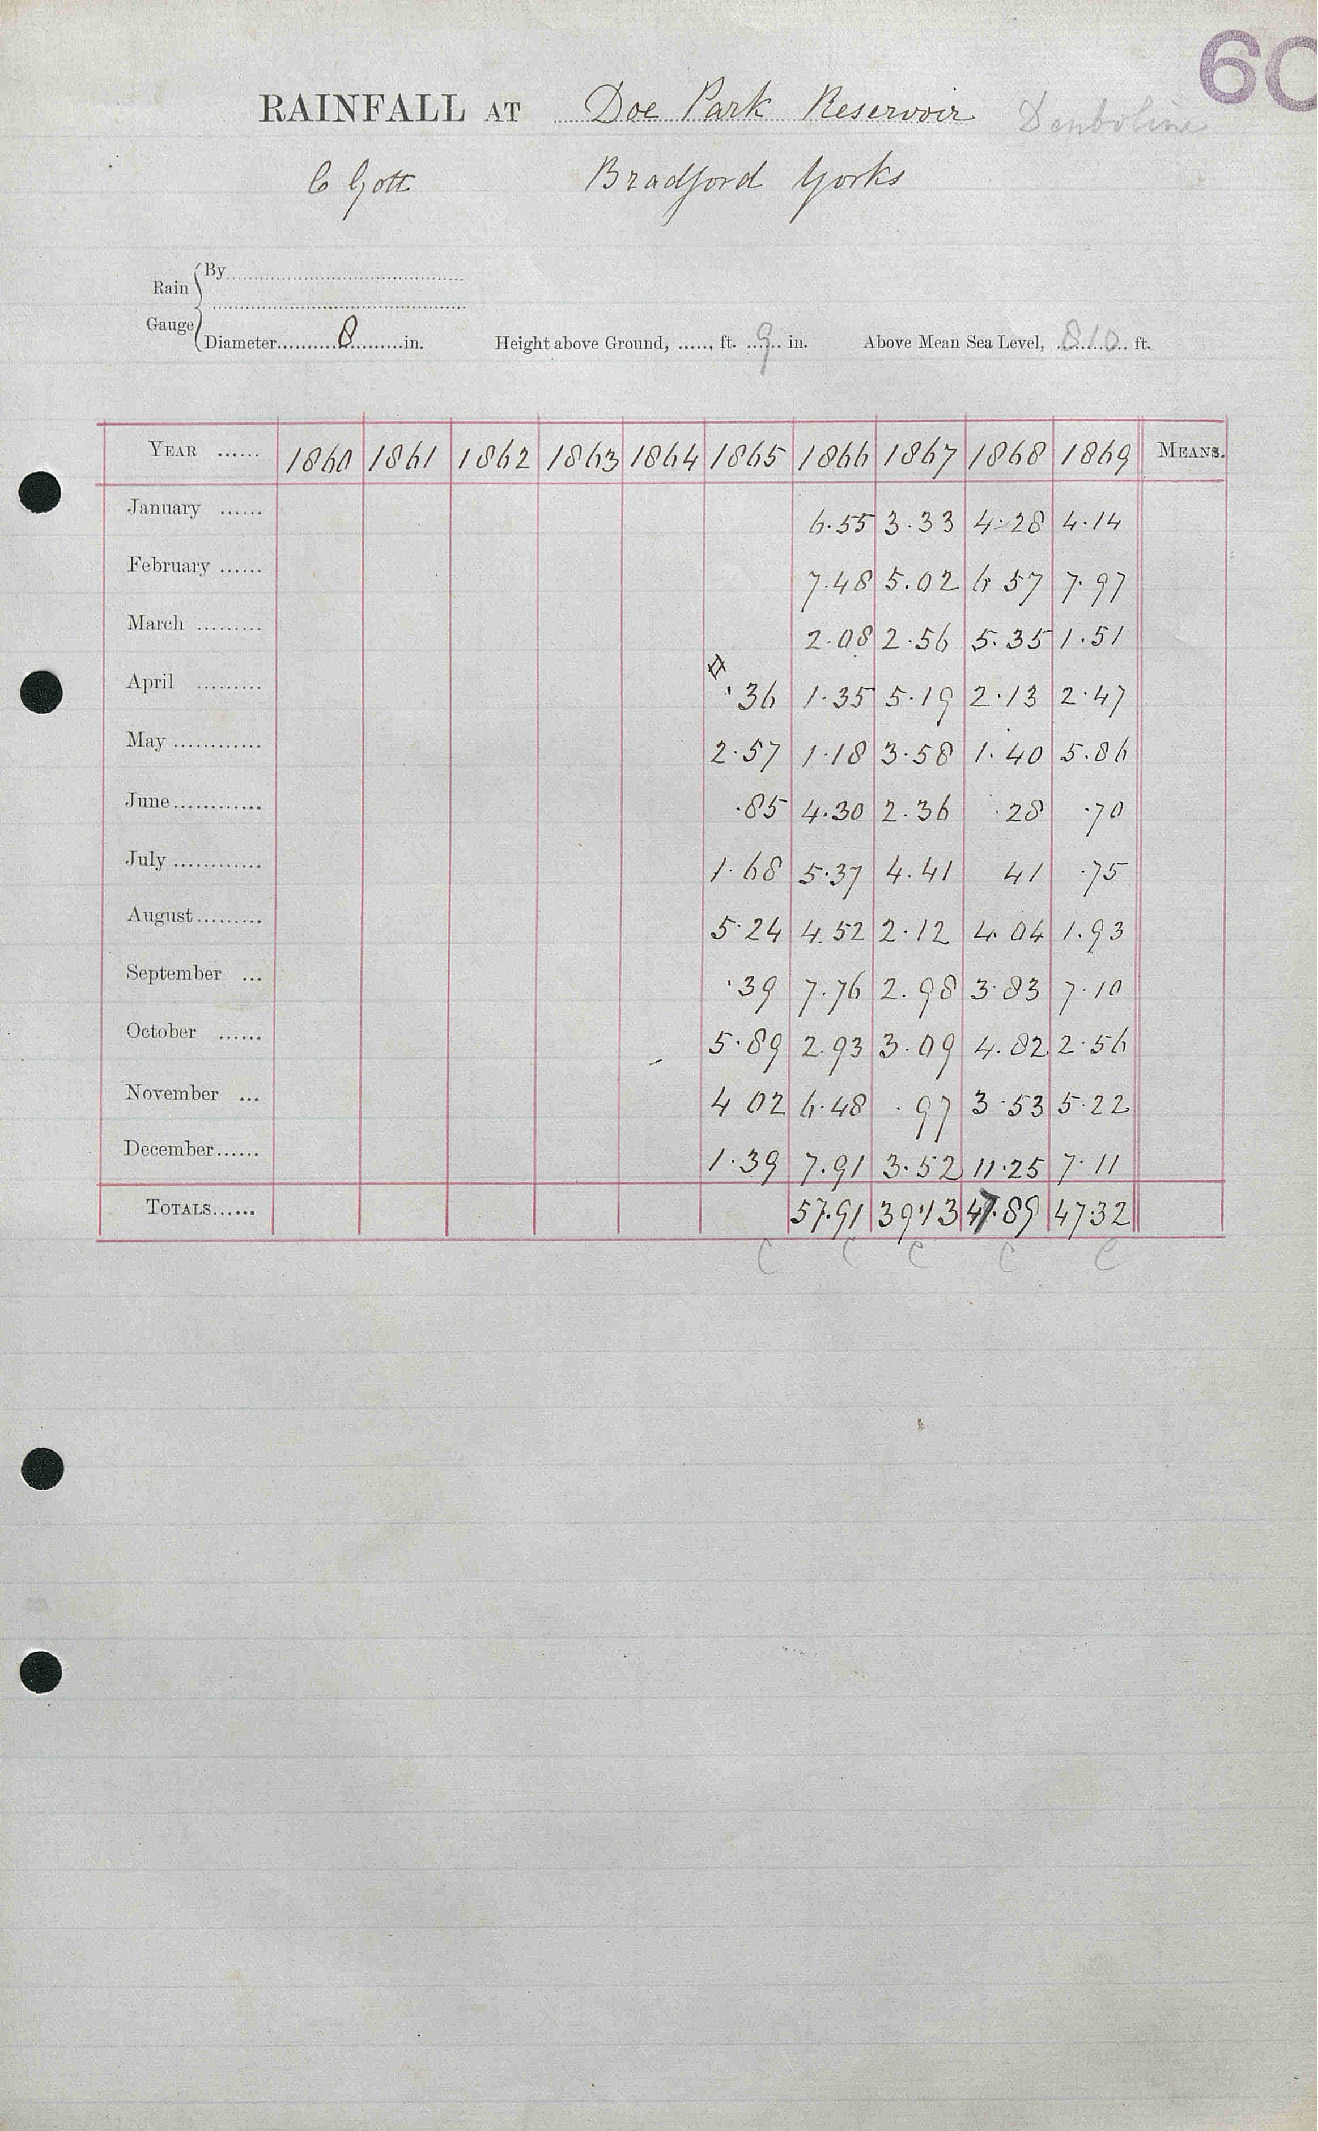 60
RAINFALL AT Doe Park Reservoir
C Gott Bradford Yorks
Rain Gauge
By
Diameter 8 in. Height above Ground, ft. 9 in. Above Mean Sea Level, 810 ft.
YEAR 1860 1861 1862 1863 1864 1865 1866 1867 1868 1869 MEANS.
January 6.55 3.33 4.28 4.14
February 7.48 5.02 6 57 7.97
March 2.08 2.56 5.35 1.51
April .36 1.35 5.19 2.13 2.47
May 2.57 1.18 3.58 1.40 5.86
June .85 4.30 2.36 .28 .70
July 1.68 5.37 4.41 41 .75
August 5.24 4.52 2.12 4.04 1.93
September .39 7.76 2.98 3.83 7.10
October 5.89 2.93 3.09 4.82 2.56
November 4 02 6.48 .97 3.53 5.22
December 1.39 7.91 3.52 11.25 7.11
TOTALS 57.91 39.13 47.89 47.32
C C C C C